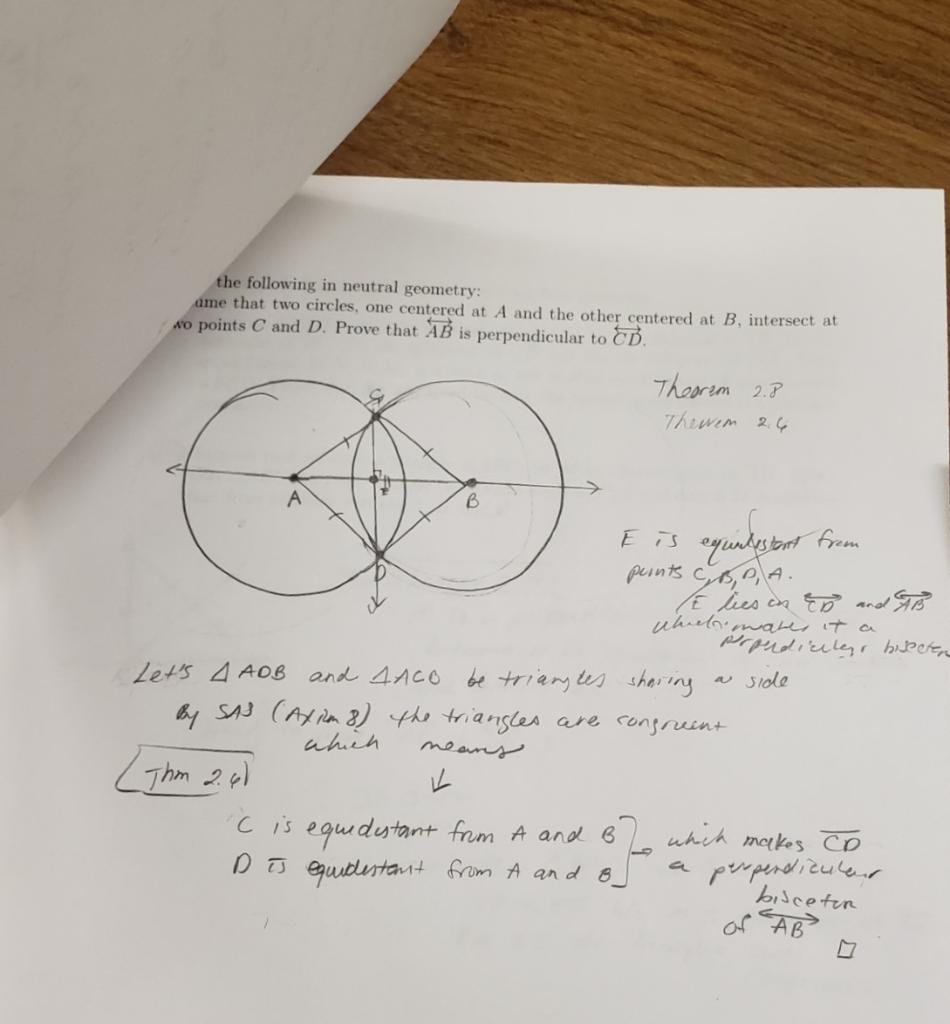 the following in neutral geometry:
ume that two circles, one centered at A and the other centered at B, intersect at
wo points C and D. Prove that AB is perpendicular to CD.
Theorem 2.8
Theorem 2.6
C
A
E
B
D
E is equidistant from
points C, B, D, A.
E lies on CD and AB
which makes it a
perpendicular bisector
Let's △ADB and △ACB be triangles sharing a side
By SAS (Axiom 8) the triangles are congruent
which means
Thm 2.6
↓
C is equidistant from A and B
D is equidistant from A and B
which makes CD
a perpendicular
bisector
of AB
□